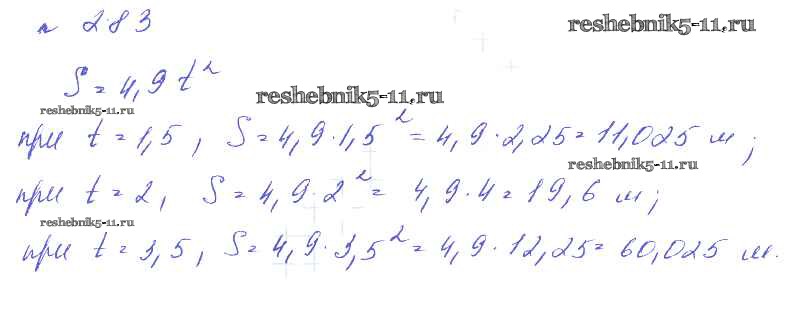 № 283
reshebnik5-11.ru
S = 4,9 t²
reshebnik5-11.ru
reshebnik5-11.ru
при t = 1,5 , S = 4,9 · 1,5² = 4,9 · 2,25 = 11,025 м ;
reshebnik5-11.ru
при t = 2 , S = 4,9 · 2² = 4,9 · 4 = 19,6 м ;
reshebnik5-11.ru
при t = 3,5 , S = 4,9 · 3,5² = 4,9 · 12,25 = 60,025 м.